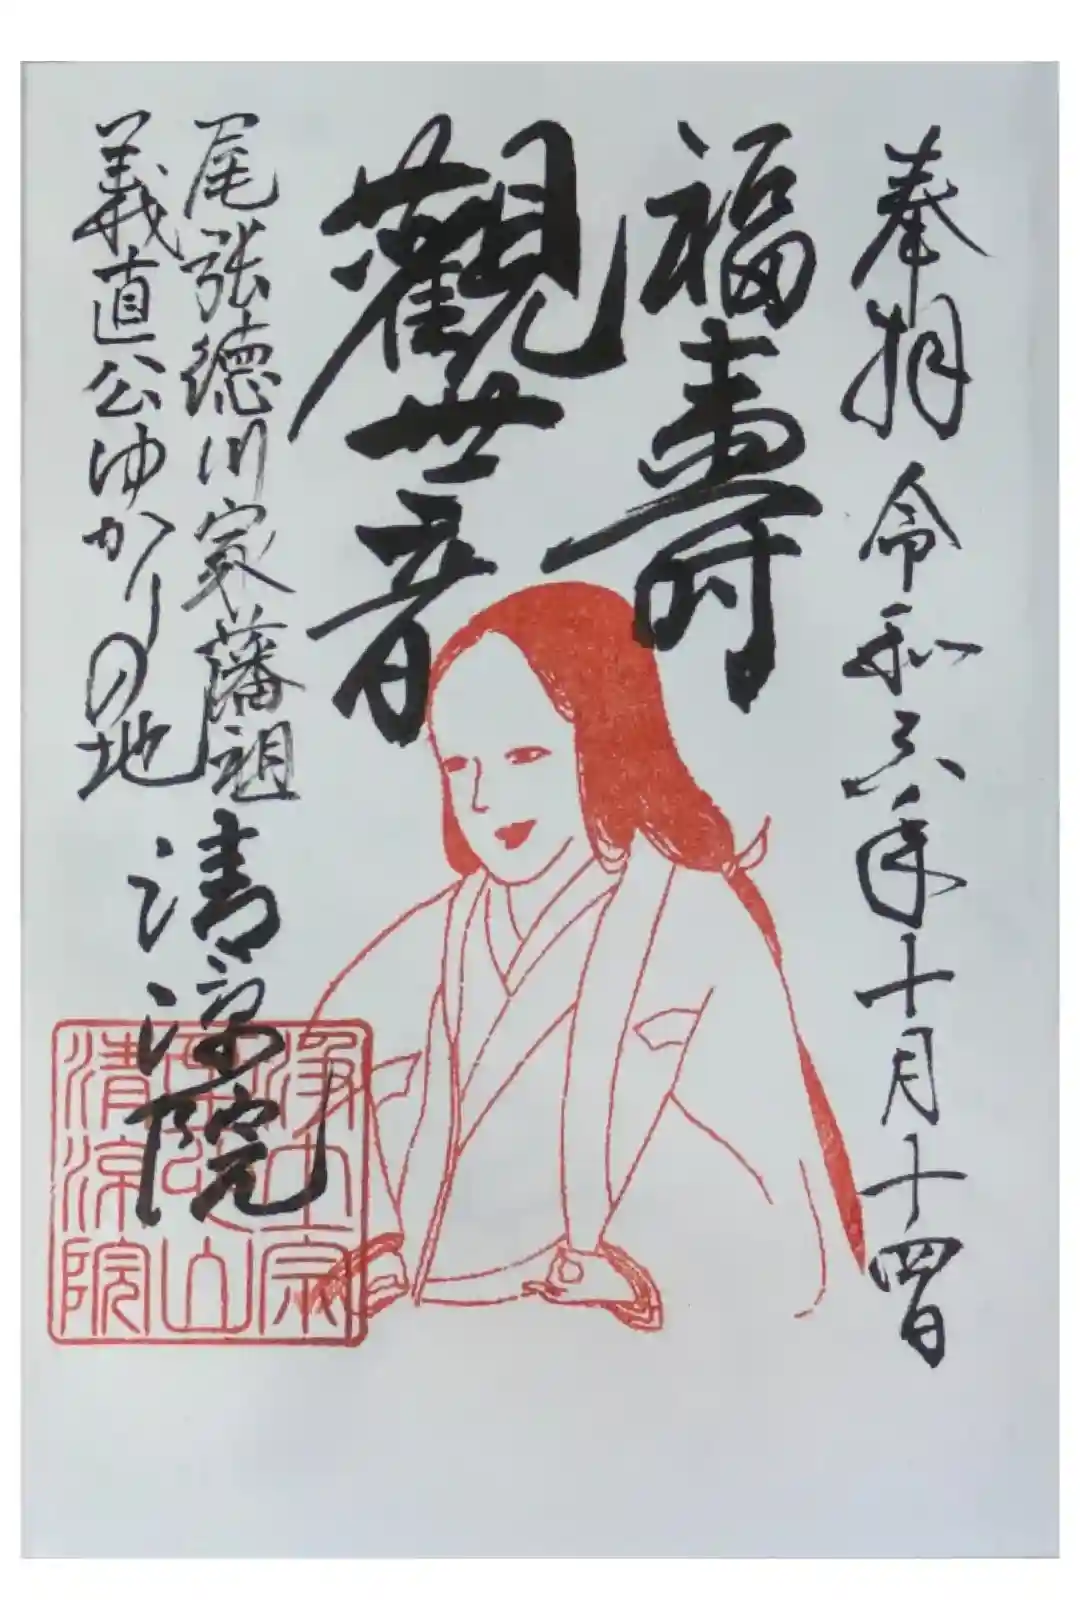 奉拝 令和六年十月十四日
福壽
觀世音
尾張徳川家藩祖
義直公ゆかりの地
清涼院
浄土宗
山
清涼院